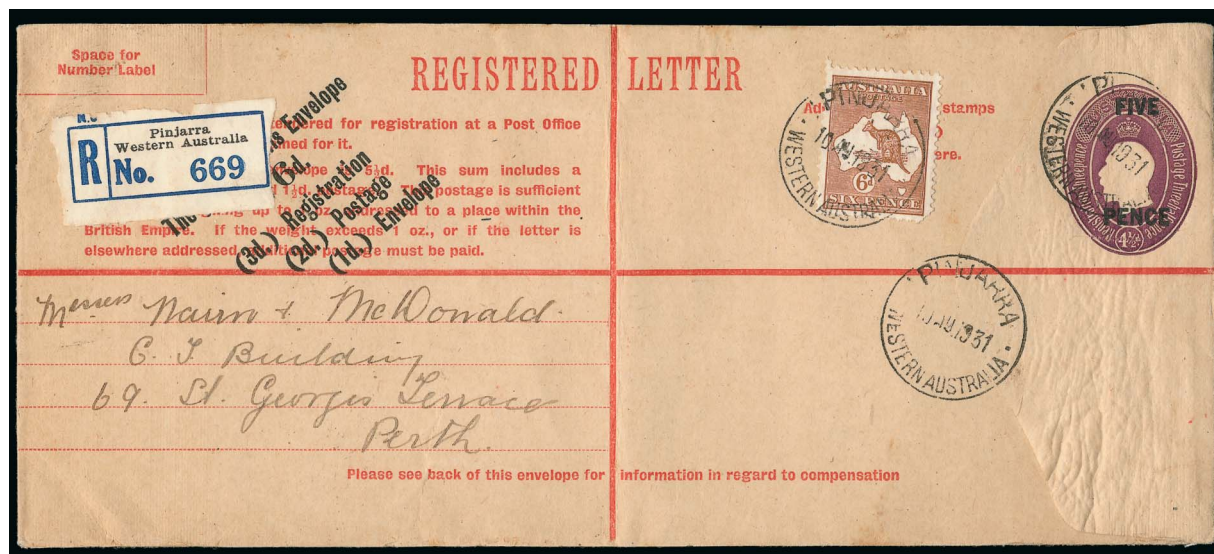 Space for
Number Label
REGISTERED LETTER
Pinjarra
Western Australia
R No. 669
for registration at a Post Office
for it.
5½d. This sum includes a
1½d. postage. The postage is sufficient
up to to a place within the
British Empire. If the weight exceeds 1 oz., or if the letter is
elsewhere addressed, postage must be paid.
Envelope
6d.
(3d.) Registration
(2d.) Postage
(1d.) Envelope
stamps
AUSTRALIA
POSTAGE
6d
SIX PENCE
PINJARRA
WESTERN AUSTRALIA
FIVE
PENCE
4½d
PINJARRA
1931
WESTERN AUSTRALIA
Messrs Nairn & McDonald.
C. T. Building
69. St. Georges Terrace
Perth.
Please see back of this envelope for information in regard to compensation